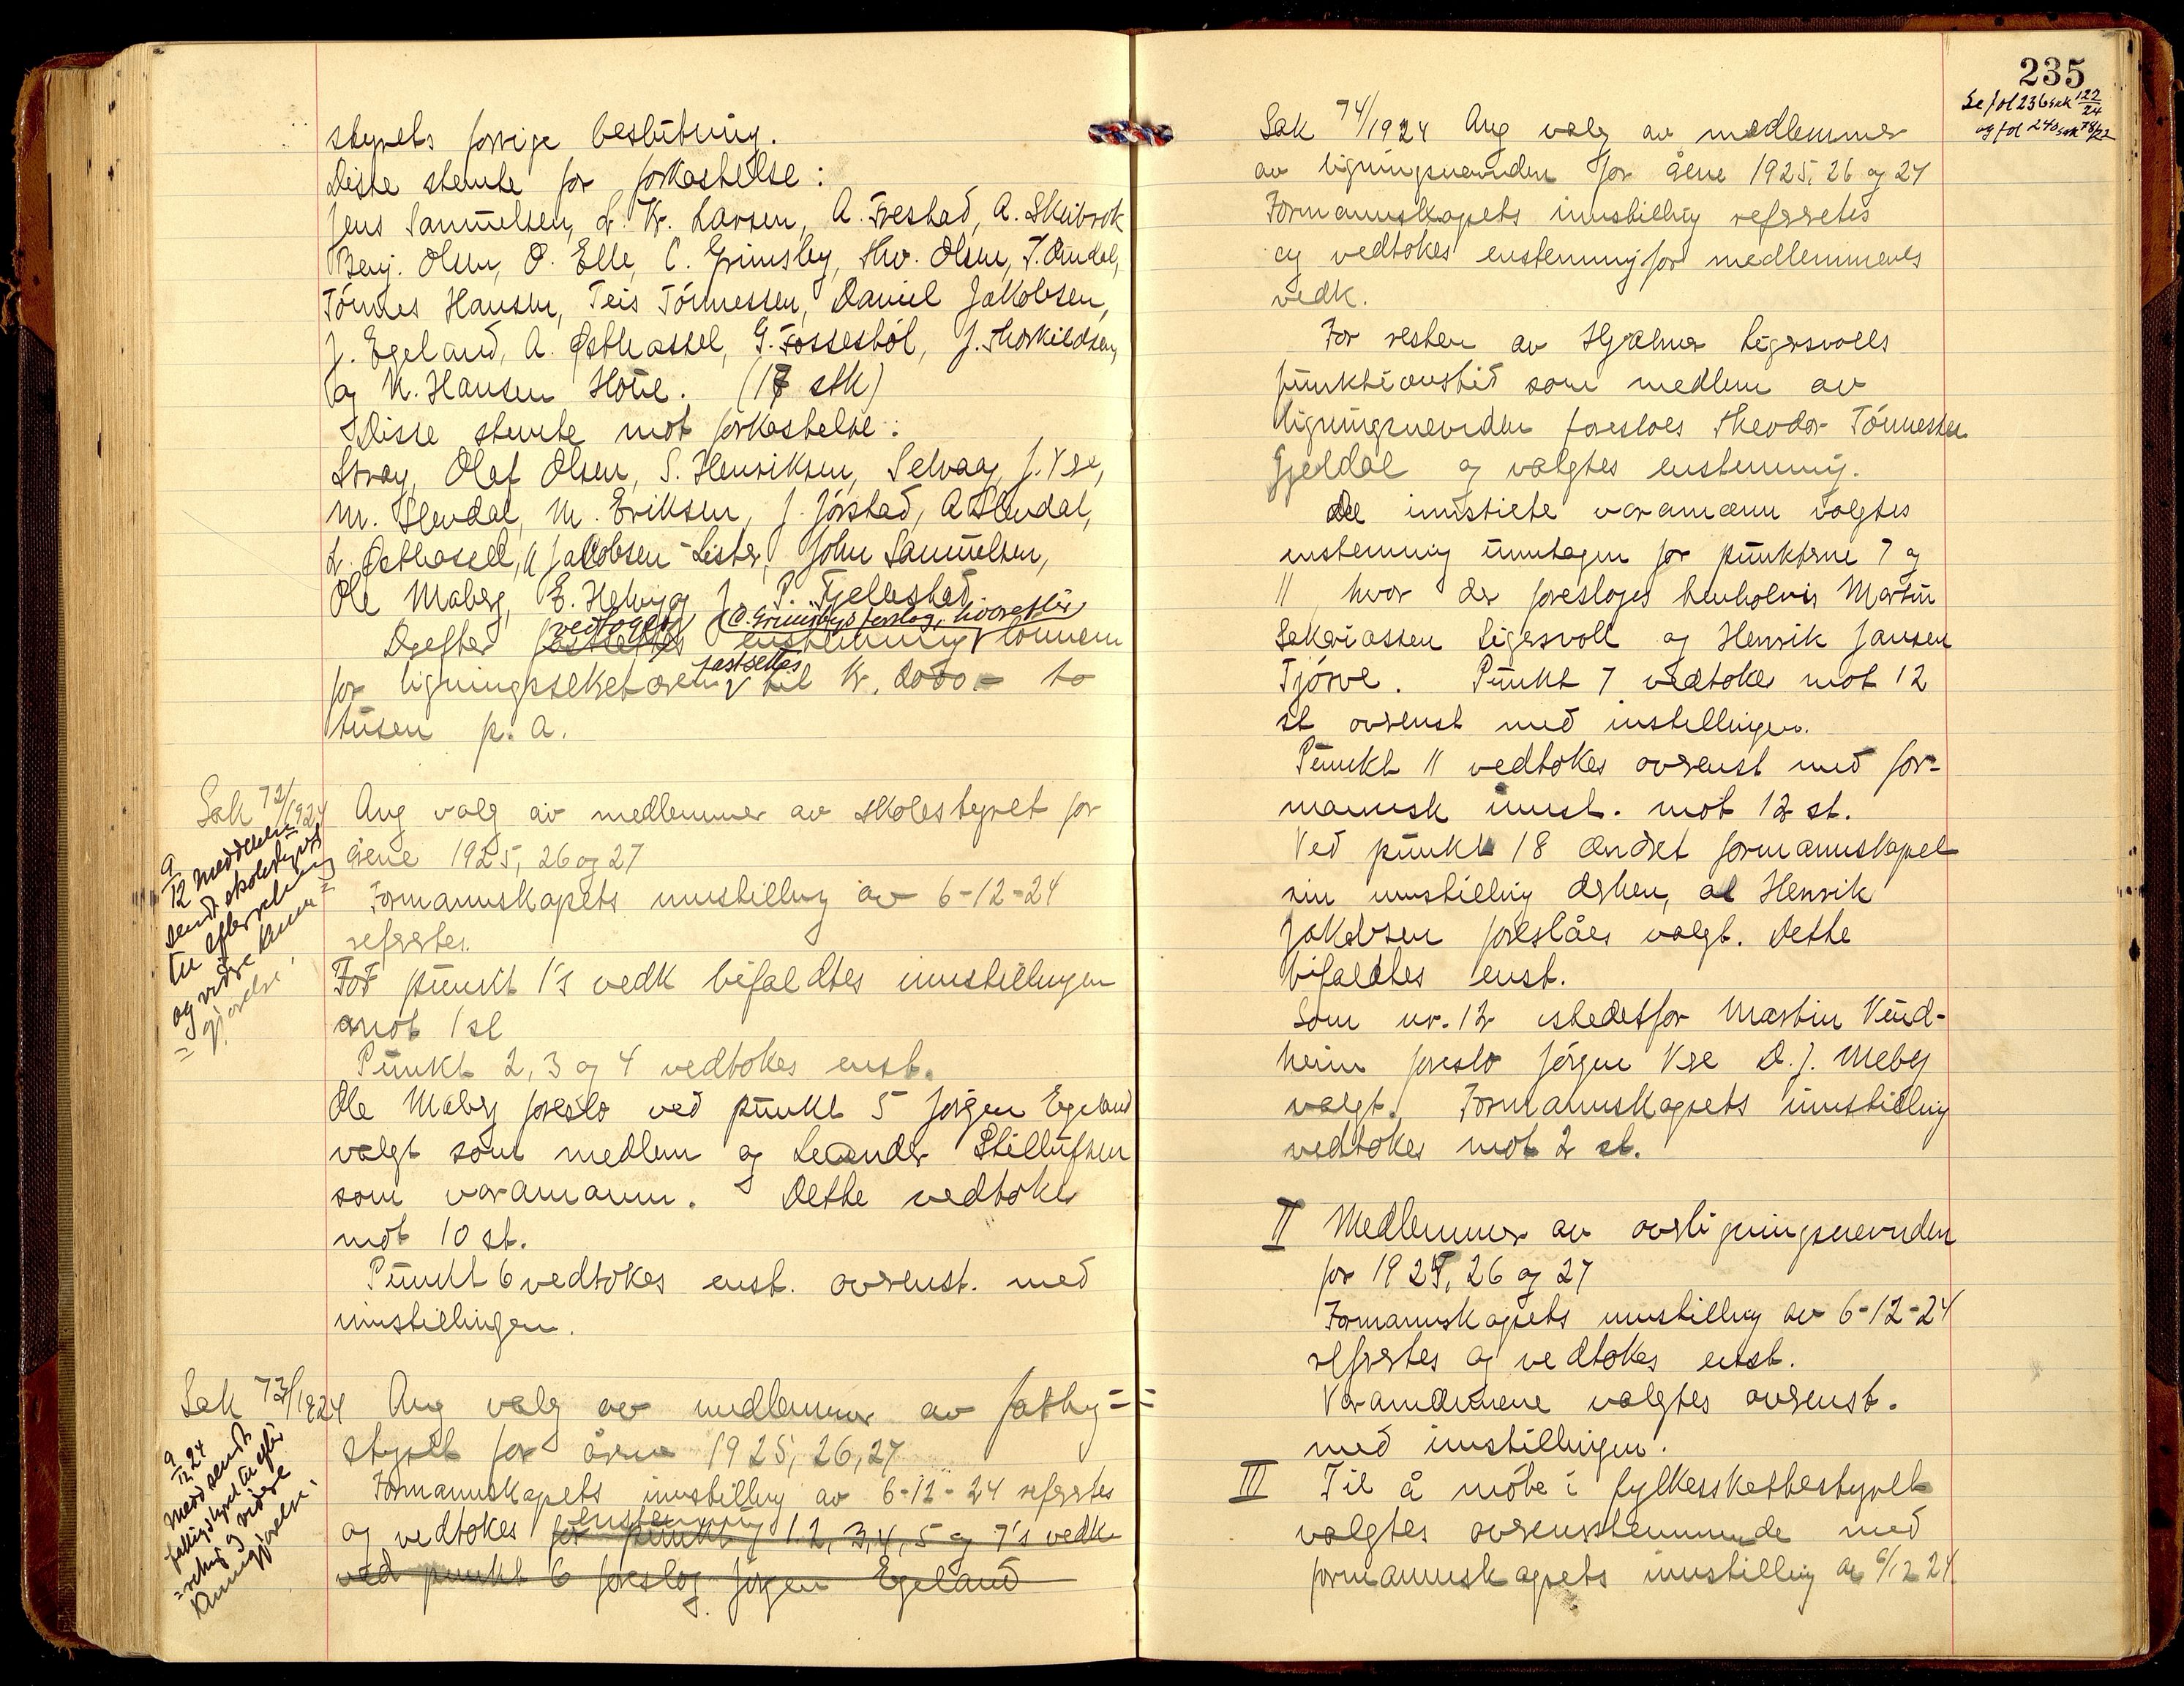 styrets forrige beslutning.
Disse stemte for forkastelse:
Jens Samuelsen, L. Kr. Larsen, A. Frestad, A. Skeibrok
Benj. Olsen, O. Elle, C. Grimsby, Thv. Olsen, T. Aundal,
Tønnes Hansen, Teis Tønnessen, Daniel Jakobsen,
J. Egeland, A. Østhassel, G. Fossestøl, J. Thorkildsen,
og N. Hansen Houe. (17 stk)
Disse stemte mot forkastelse:
Stray, Olaf Olsen, S. Henriksen, Selvaag, J. Vere,
M. Slevdal, M. Eriksen, J. Jørstad, A Slevdal,
L. Østhassel, A Jakobsen-Lister, John Samuelsen,
Ole Maberg, E. Helvig og J. P. Fjellestad.
Derefter vedtoges enstemmig O. Grimsbys forslag, hvorefter lønnen
for ligningssekretæren fastsettes til kr. 2000.- to
tusen p. a.
Sak 72/1924
9/12 meddelelse
sendt skolestyret
til efterretning
og videre kunn=
=gjørelse.
Ang valg av medlemmer av skolestyret for
årene 1925, 26 og 27
Formannskapets innstilling av 6-12-24
refertes.
For punkt 1's vedk bifaldtes innstillingen
mot 1 st
Punkt 2, 3 og 4 vedtokes enst.
Ole Maberg foreslo ved punkt 5 Jørgen Egeland
valgt som medlem og Leander Stellufsen
som varamann. Dette vedtokes
mot 10 st.
Punkt 6 vedtokes enst. overenst. med
innstillingen.
Sak 73/1924
9/12 24
Medd sendt
fattigstyret til efter
=retng og videre
kunngjørelse.
Ang valg av medlemmer av fattig=
styret for årene 1925, 26, 27
Formannskapets innstilling av 6-12-24 refertes
og vedtokes enstemmig for punkt 1 2, 3, 4, 5 og 7's vedk
ved punkt 6 foreslog Jørgen Egeland
235
Se fol 236 sak 122/24
og fol 240 sak
Sak 74/1924 Ang valg av medlemmer
av ligningsnevnden for årene 1925, 26 og 27
Formannskapets innstilling refertes
og vedtokes enstemmig for medlemmenes
vedk.
For resten av Hjalmer Sigersvolls
funktionstid som medlem av
ligningsnevnden foresloes Theodor Tønnessen
Gjeldal og valgtes enstemmig.
De innstilte varamænn valgtes
enstemmig unntagen for punktene 7 og
11 hvor der foresloges henholdvis Martin
Sakariassen Sigersvoll og Henrik Jansen
Tjørve. Punkt 7 vedtokes mot 12
st overenst med instillingen.
Punkt 11 vedtokes overenst med for-
mannsk innst. mot 12 st.
Ved punkt 18 ændret formannskapet
sin innstilling derhen, at Henrik
Jakobsen foreslåes valgt. Dette
bifaldtes enst.
Som nr. 12 istedetfor Martin Vend-
heim foreslo Jørgen Vere D. J. Meberg
valgt. Formannskapets innstilling
vedtokes mot 2 st.
II Medlemmer av overligningsnevnden
for 1925, 26 og 27
Formannskapets innstilling av 6-12-24
refertes og vedtokes enst.
Varamennene valgtes overenst.
med innstillingen.
III Til å møte i fylkesskattestyret
valgtes overensstemmende med
formannskapets innstilling av 6/12 24.